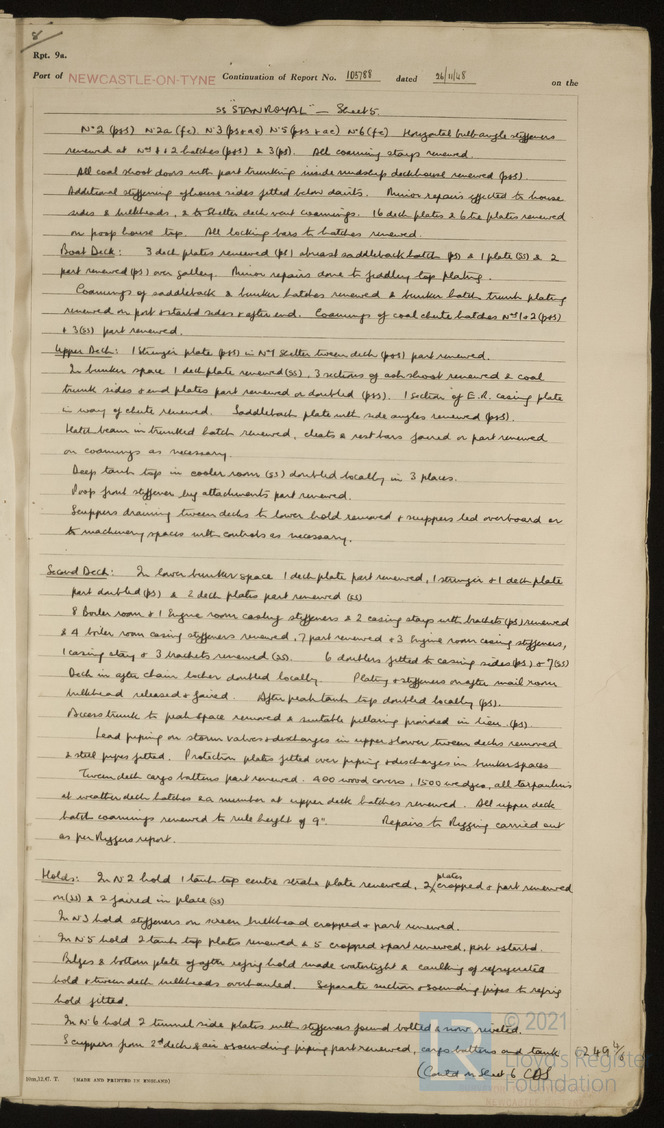 8
Rpt. 9a.
Port of NEWCASTLE-ON-TYNE Continuation of Report No. 105788 dated 26/11/48 on the
SS "STANROYAL" — Sheet 5.
No 2 (p&s) No 2a (fc). No 3 (p&s+ac) No 5 (p&s + ac) No 6 (fc) Horizontal bulb angle stiffeners
renewed at Nos 1 + 2 hatches (p&s) & 3 (ps). All coaming stays renewed.
All coal shoot doors with part trunking inside midship deckhouse renewed (p&s).
Additional stiffening of house sides fitted below davits. Minor repairs effected to house
sides & bulkheads, & to shelter deck vent coamings. 16 deck plates & 6 tie plates renewed
on poop house top. All locking bars to hatches renewed.
Boat Deck: 3 deck plates renewed (ps) abreast saddleback hatch (ps) & 1 plate (ss) & 2
part renewed (ps) over galley. Minor repairs done to fiddley top plating.
Coamings of saddleback & bunker hatches renewed & bunker hatch trunk plating
renewed on port & starbd sides & after end. Coamings of coal chute hatches Nos 1 & 2 (p&s)
& 3 (ss) part renewed.
Upper Deck: 1 stringer plate (p&s) in No 1 shelter tween deck (p&s) part renewed.
In bunker space 1 deck plate renewed (ss), 3 sections of ash shoot renewed & coal
trunk sides & end plates part renewed or doubled (p&s). 1 section of E.R. casing plate
in way of chute renewed. Saddleback plate with side angles renewed (p&s).
Hatch beam in trunked hatch renewed, cleats & rest bars faired or part renewed
on coamings as necessary.
Deep tank top in cooler room (ss) doubled locally in 3 places.
Poop front stiffener lug attachments part renewed.
Scuppers draining tween decks to lower hold removed & scuppers led overboard or
to machinery spaces with controls as necessary.
Second Deck: In lower bunker space 1 deck plate part renewed, 1 stringer & 1 deck plate
part doubled (ps) & 2 deck plates part renewed (ss)
8 Boiler room & 1 Engine room casing stiffeners & 2 casing stays with brackets (ps) renewed
& 4 boiler room casing stiffeners renewed, 7 part renewed & 3 Engine room casing stiffeners,
1 casing stay & 3 brackets renewed (ss). 6 doublers fitted to casing sides (ps) & 7 (ss)
Deck in after chain locker doubled locally. Plating & stiffeners on after mail room
bulkhead released & faired. After peak tank top doubled locally (ps).
Access trunk to peak space removed & suitable pillaring provided in lieu. (ps).
Lead piping on storm valves & discharges in upper & lower tween decks removed
& steel pipes fitted. Protection plates fitted over piping & discharges in bunker spaces
Tween deck cargo battens part renewed. 400 wood covers, 1500 wedges, all tarpaulins
at weather deck hatches & a number at upper deck hatches renewed. All upper deck
hatch coamings renewed to rule height of 9". Repairs to Rigging carried out
as per Riggers report.
Holds: In No 2 hold 1 tank top centre strake plate renewed, 2 plates cropped & part renewed
on (ss) & 2 faired in place (ss)
In No 3 hold stiffeners on screen bulkhead cropped & part renewed.
In No 5 hold 2 tank top plates renewed & 5 cropped & part renewed, port & starbd.
Bilges & bottom plate of after refrig hold made watertight & caulking of refrigerated
hold & tween deck bulkheads overhauled. Separate suction & sounding pipes to refrig
hold fitted.
In No 6 hold 2 tunnel side plates with stiffeners found bolted & now riveted.
Scuppers from 2nd deck & air & sounding piping part renewed, cargo battens and tank
(Contd on Sheet 6
10m,12,47. T. (MADE AND PRINTED IN ENGLAND)
© 2021
Lloyd's Register
Foundation